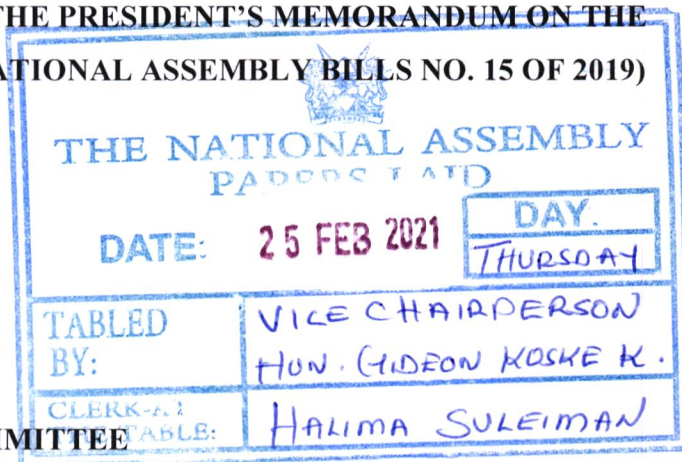 THE PRESIDENT'S MEMORANDUM ON THE
ATIONAL ASSEMBLY BILLS NO. 15 OF 2019)
THE NATIONAL ASSEMBLY
PAPERS LAID
DATE: 25 FEB 2021
DAY.
THURSDAY
TABLED BY:
VICE CHAIRPERSON
HON. GIDEON KOSKE K.
CLERK-AT TABLE:
HALIMA SULEIMAN
MMITTEE